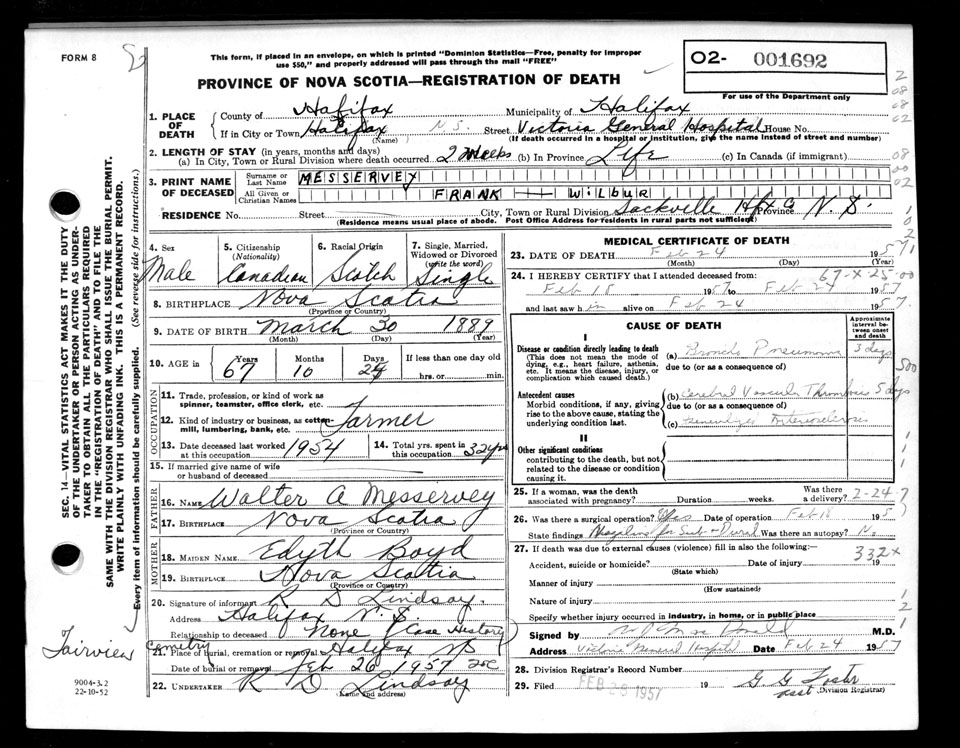 FORM 8
This form, if placed in an envelope, on which is printed "Dominion Statistics—Free, penalty for improper
use $50," and properly addressed will pass through the mail "FREE"
O2- 001692
For use of the Department only
PROVINCE OF NOVA SCOTIA—REGISTRATION OF DEATH
1. PLACE OF DEATH
County of Halifax Municipality of Halifax
If in City or Town Halifax N.S. Street Victoria General Hospital House No.
(Name) (If death occurred in a hospital or institution, give the name instead of street and number)
2. LENGTH OF STAY (in years, months and days)
(a) In City, Town or Rural Division where death occurred 2 Weeks (b) In Province Life (c) In Canada (if immigrant)
3. PRINT NAME OF DECEASED
Surname or Last Name MESSERVEY
All Given or Christian Names FRANK — WILBUR
RESIDENCE No. Street City, Town or Rural Division Sackville Hfx Co Province N.S.
(Residence means usual place of abode. Post Office Address for residents in rural parts not sufficient)
4. Sex Male
5. Citizenship (Nationality) Canadian
6. Racial Origin Scotch
7. Single, Married, Widowed or Divorced (write the word) Single
8. BIRTHPLACE Nova Scotia
(Province or Country)
9. DATE OF BIRTH March 30 1889
(Month) (Day) (Year)
10. AGE in Years 67 Months 10 Days 24 If less than one day old hrs. or min.
OCCUPATION
11. Trade, profession, or kind of work as spinner, teamster, office clerk, etc.
12. Kind of industry or business, as cotton-mill, lumbering, bank, etc. Farmer
13. Date deceased last worked at this occupation 1954
14. Total yrs. spent in this occupation 32 yrs
15. If married give name of wife or husband of deceased
FATHER
16. NAME Walter A Messervey
17. BIRTHPLACE Nova Scotia
(Province or Country)
MOTHER
18. MAIDEN NAME Edyth Boyd
19. BIRTHPLACE Nova Scotia
(Province or Country)
20. Signature of informant R D Lindsay
Address Halifax N.S
Relationship to deceased None (Case History)
Fairview Cemetery
21. Place of burial, cremation or removal Halifax NS
Date of burial or removal Feb 26 1957
22. UNDERTAKER R D Lindsay
(Name and address)
9004-3.2
22-10-52
SEC. 14—VITAL STATISTICS ACT MAKES IT THE DUTY
OF THE UNDERTAKER OR PERSON ACTING AS UNDER-
TAKER TO OBTAIN ALL THE PARTICULARS REQUIRED
IN THE "REGISTRATION OF DEATH" AND TO FILE THE
SAME WITH THE DIVISION REGISTRAR WHO SHALL ISSUE THE BURIAL PERMIT.
WRITE PLAINLY WITH UNFADING INK. THIS IS A PERMANENT RECORD.
Every item of information should be carefully supplied. (See reverse side for instructions.)
MEDICAL CERTIFICATE OF DEATH
23. DATE OF DEATH Feb 24 1957
(Month) (Day) (Year)
24. I HEREBY CERTIFY that I attended deceased from:
Feb 18 1957 to Feb 24 1957
and last saw him alive on Feb 24 1957.
CAUSE OF DEATH
Approximate interval between onset and death
I
Disease or condition directly leading to death
(This does not mean the mode of dying, e.g., heart failure, asthenia, etc. It means the disease, injury, or complication which caused death.)
(a) Broncho Pneumonia 3 days
due to (or as a consequence of)
Antecedent causes
Morbid conditions, if any, giving rise to the above cause, stating the underlying condition last.
(b) Cerebral Vascular Thrombosis 5 days
due to (or as a consequence of)
(c) Generalized Arteriosclerosis
II
Other significant conditions
contributing to the death, but not related to the disease or condition causing it.
25. If a woman, was the death associated with pregnancy? Duration weeks. Was there a delivery?
2-24-7
26. Was there a surgical operation? Yes Date of operation Feb 18 195
State findings for Sub-Dural Was there an autopsy? No
27. If death was due to external causes (violence) fill in also the following:—
332x
Accident, suicide or homicide? Date of injury 19
(State which)
Manner of injury
(How sustained)
Nature of injury
Specify whether injury occurred in industry, in home, or in public place
Signed by M.D.
Address Victoria General Hospital Date Feb 24 1957
28. Division Registrar's Record Number
29. Filed FEB 28 1957 19 G G Foster
asst (Division Registrar)